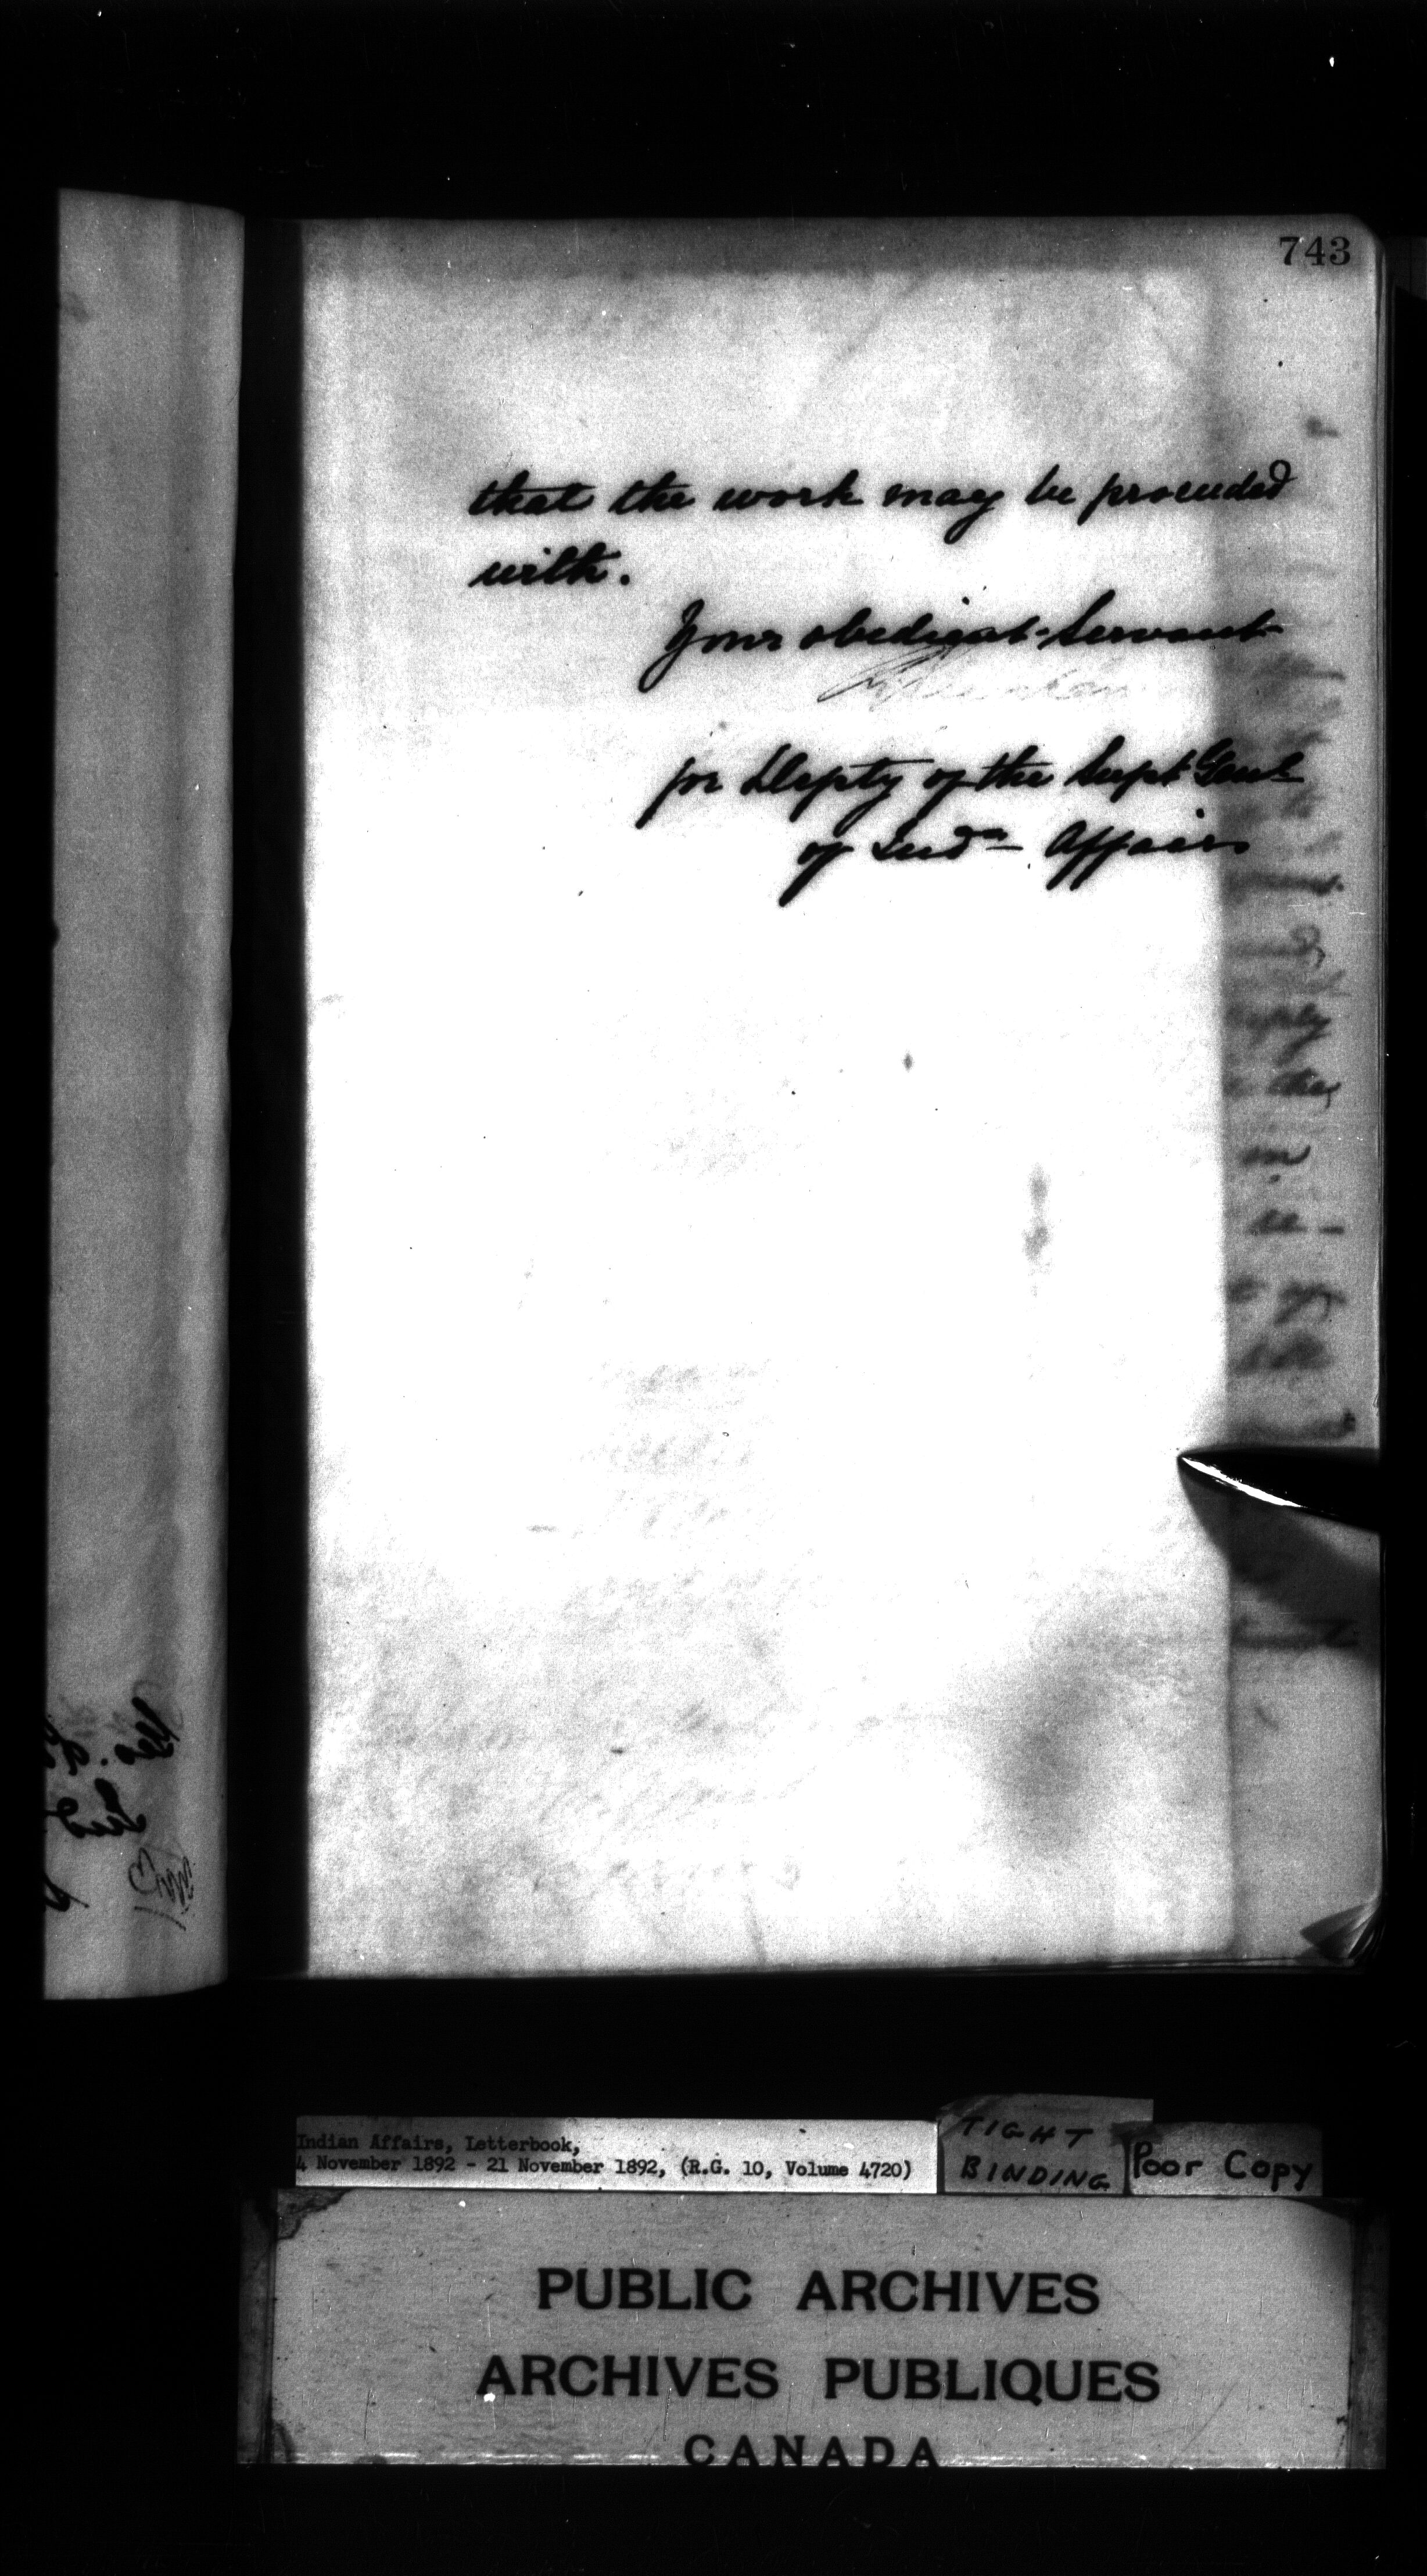 743
that the work may be proceeded
with.
Your obedient Servant
for Depty of the Supt Genl
of Indn Affairs
Indian Affairs, Letterbook,
4 November 1892 - 21 November 1892, (R.G. 10, Volume 4720)
TIGHT
BINDING
Poor Copy
PUBLIC ARCHIVES
ARCHIVES PUBLIQUES
CANADA